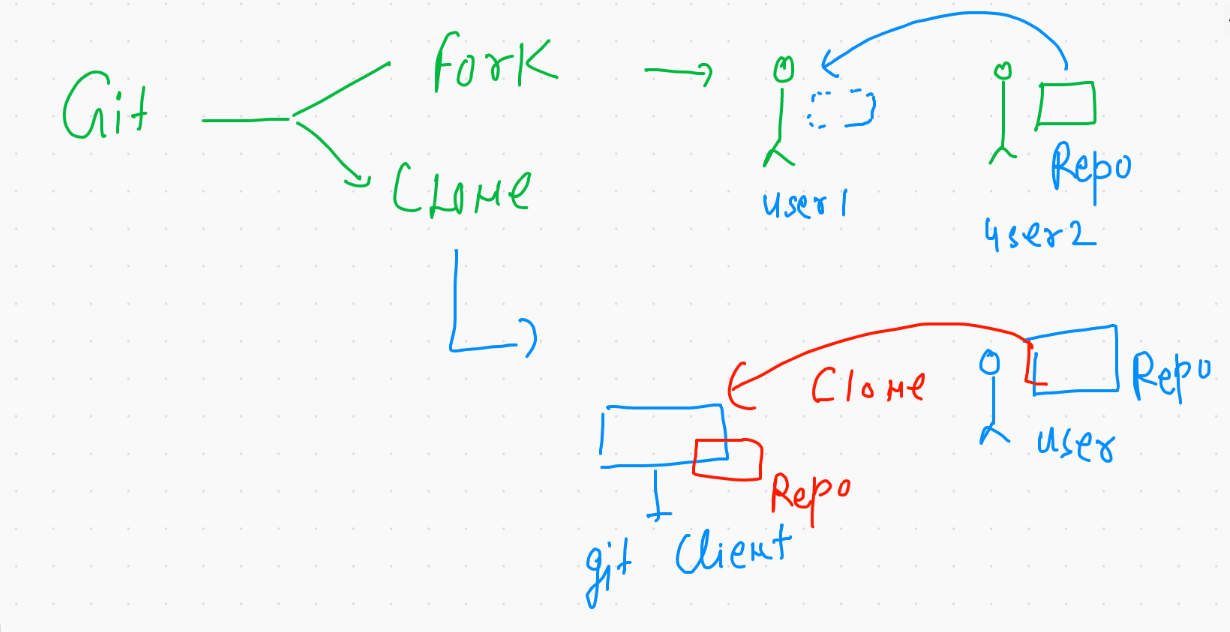 Git
Fork
Clone
user1
Repo
user2
Clone
Repo
user
Repo
git Client